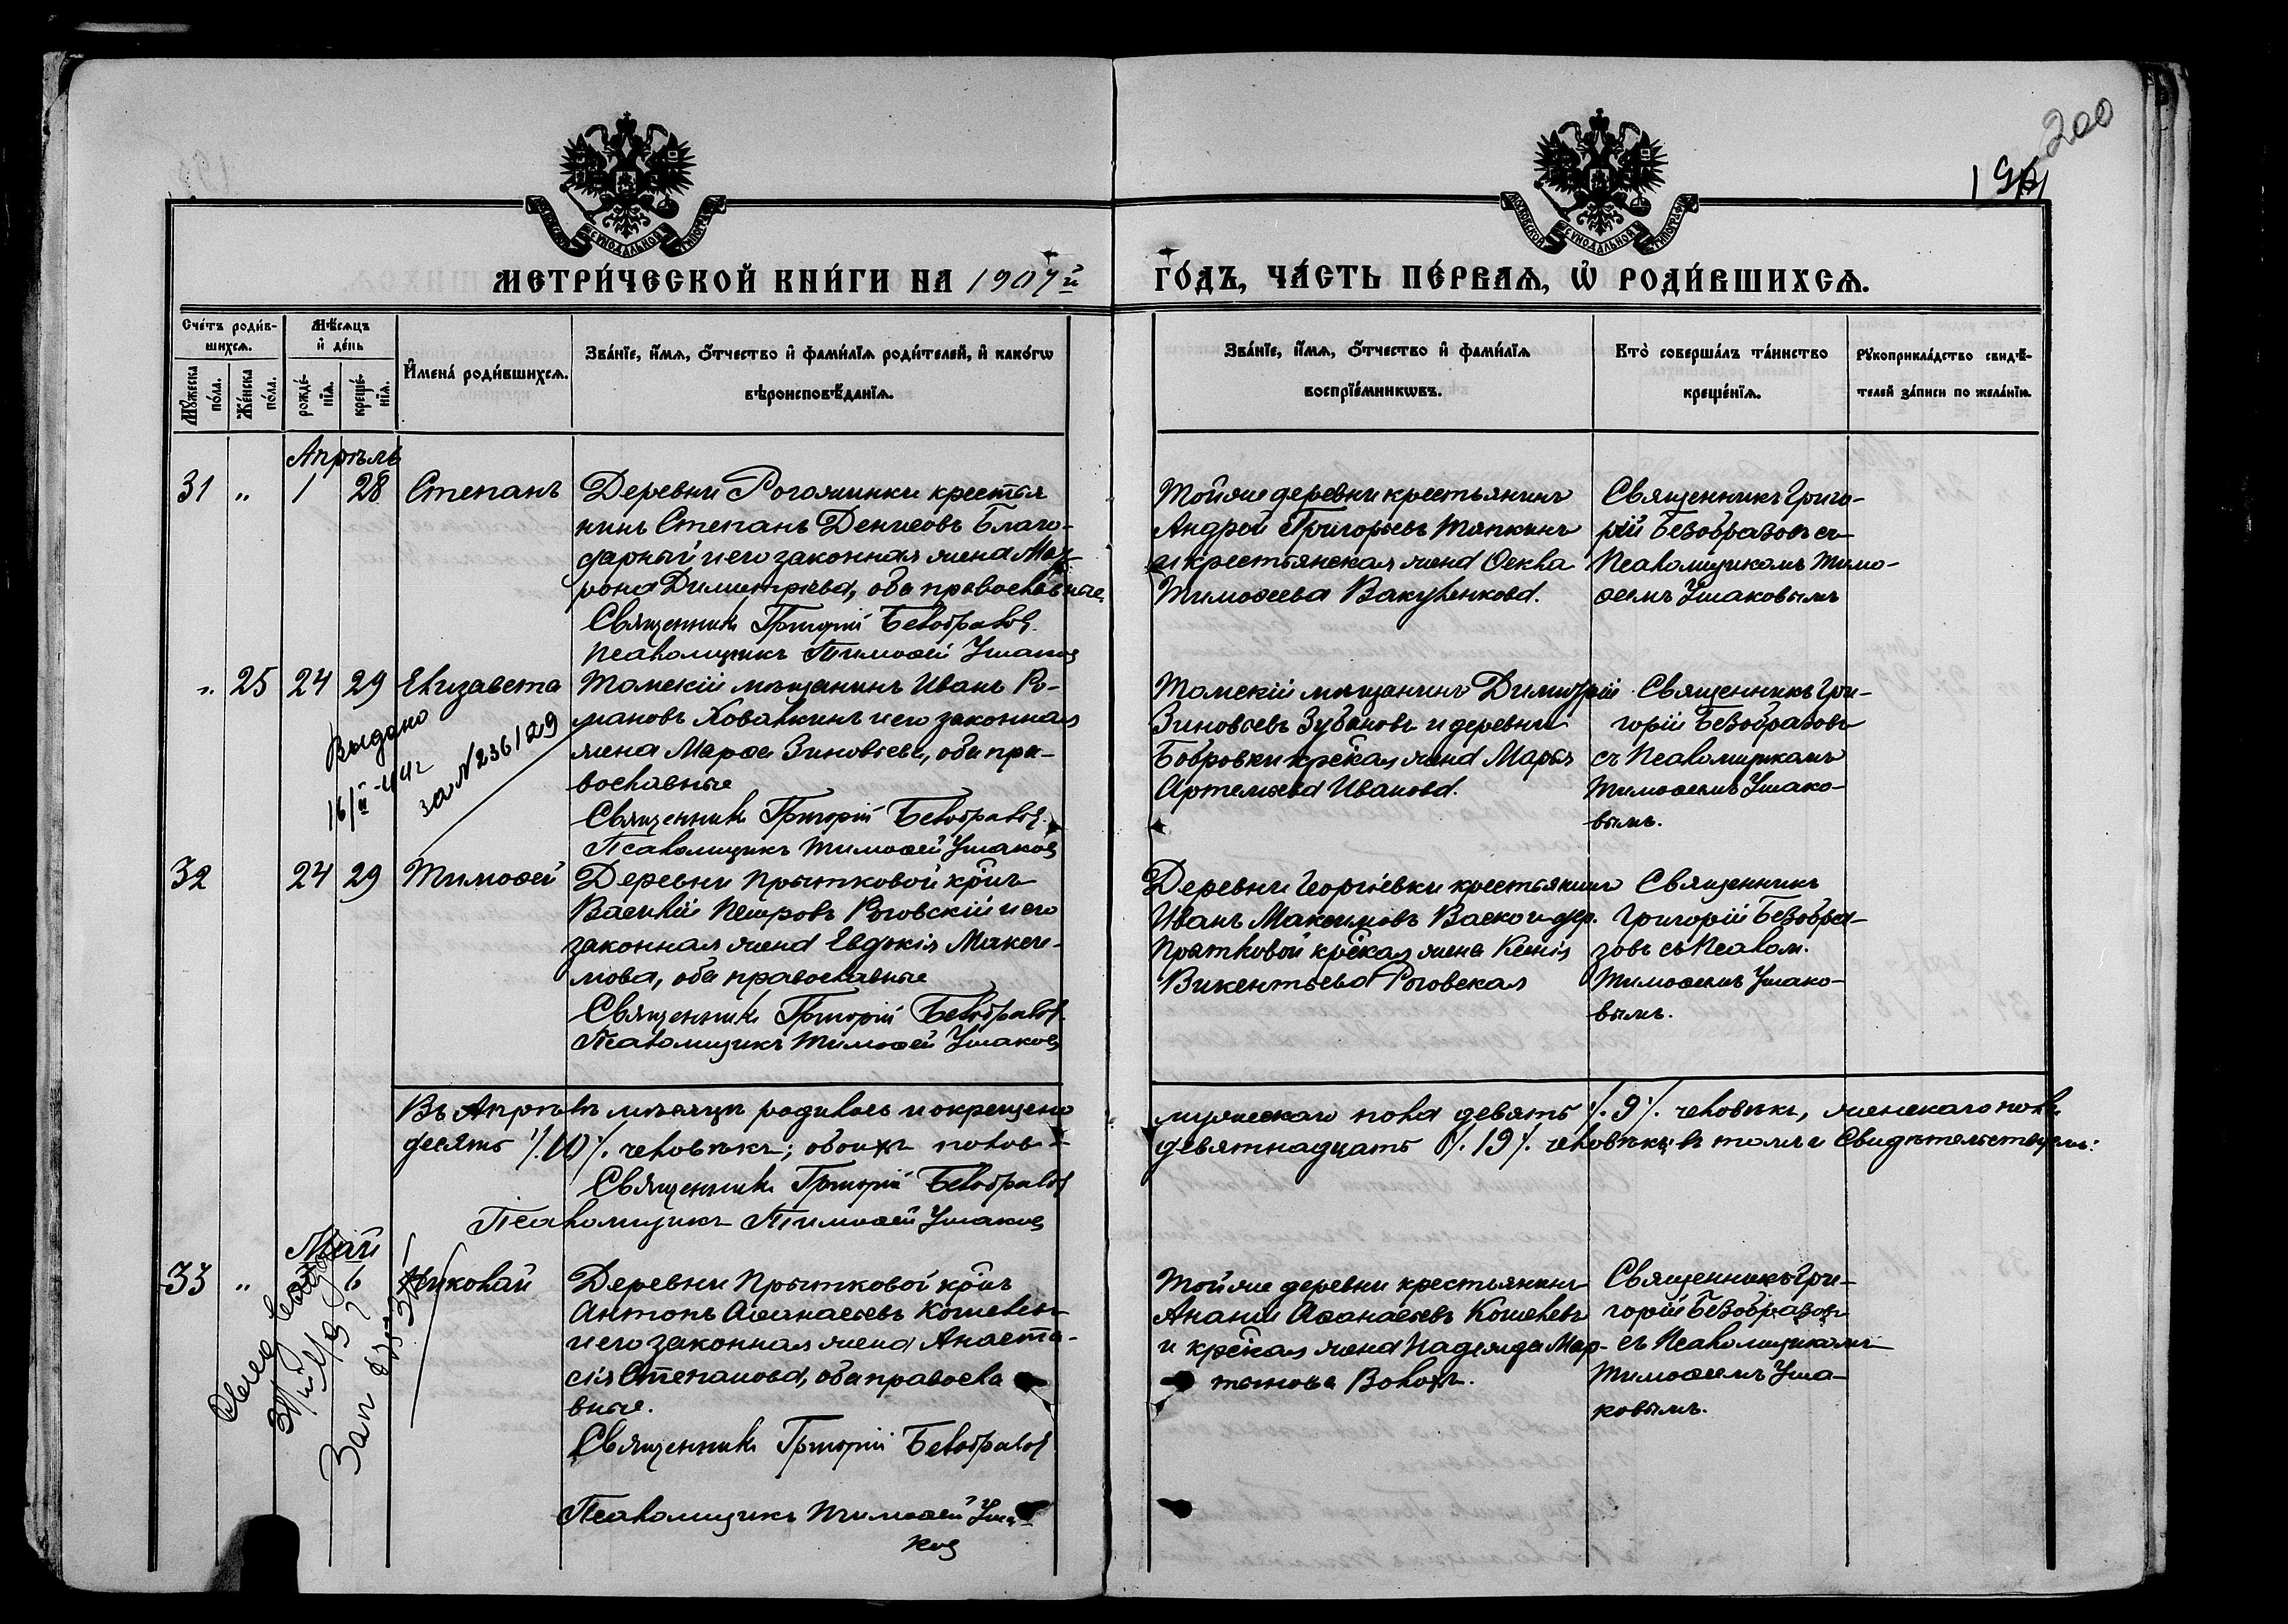 200
МЕТРИ́ЧЕСКОЙ КНИ́ГИ НА 1907й
ГО́ДЪ, ЧА́СТЬ ПЕ́РВАѦ, Ѡ҆ РОДИ́ВШИХСѦ.
Сче́тъ роди́в-
шихсѧ.
Мꙋ́жеска
по́ла.
Же́нска
по́ла.
Мѣ́сѧцъ
и҆ де́нь
рожде́-
нїѧ.
креще́-
нїѧ.
И҆мена̀ роди́вшихсѧ.
Зва́нїе, и҆́мѧ, ѻ҆́тчество и҆ фами́лїѧ роди́телей, и҆ како́гѡ
вѣроисповѣ́данїѧ.
Зва́нїе, и҆́мѧ, ѻ҆́тчество и҆ фами́лїѧ
воспрїе́мникѡвъ.
Кто̀ соверша́лъ та́инство
креще́нїѧ.
Рꙋкоприкла́дство свидѣ́-
телей за́писи по жела́нїю.
Апрѣль
31 " 1 28 Степанъ
Деревни Рогожинки крестья
нинъ Степанъ Денисовъ Благо-
дарный и его законная жена Мат
рона Димитріева, оба православные
Священникъ Григорій Безобразовъ
Псаломщикъ Тимоѳей Ушаковъ
Тойже деревни крестьянинъ
Андрей Григорьевъ Тяпкинъ
и крестьянская жена Ѳекла
Тимоѳеева Вакуленкова.
Священникъ Григо-
рій Безобразовъ съ
Псаломщикомъ Тимо-
ѳеемъ Ушаковымъ
" 25 24 29 Елизавета
Выдано
за № 236/29
Томскій мѣщанинъ Иванъ Ро-
мановъ Ховалкинъ и его законная
жена Марѳа Зиновьева, оба пра-
вославные
Священникъ Григорій Безобразовъ
Псаломщикъ Тимоѳей Ушаковъ
Томскій мѣщанинъ Димитрій
Зиновьевъ Зубановъ и деревни
Бобровки крс̃кая жена Марья
Артемьева Иванова.
Священникъ Гри-
горій Безобразовъ
съ Псаломщикомъ
Тимоѳеемъ Ушако-
вымъ.
32 24 29 Тимоѳей
Деревни Прытковой кр̃нъ
Василій Петровъ Роговскій и его
законная жена Евдокія Макси-
мова, оба православные
Священникъ Григорій Безобразовъ
Псаломщикъ Тимоѳей Ушаковъ
Деревни Георгіевки крестьянинъ
Иванъ Максимовъ Васко и дер.
Прытковой крс̃кая жена Ксенія
Викентьева Роговская
Священникъ
Григорій Безобра-
зовъ съ Псалом.
Тимоѳеемъ Ушако-
вымъ.
Въ Апрѣлѣ мѣсяцѣ родилось и окрещено
мужескаго пола девять /.9/. человѣкъ, женскаго пола
десять /.10/. человѣкъ; обоихъ половъ
девятнадцать /.19/. человѣкъ въ томъ и Свидѣтельствуемъ:
Священникъ Григорій Безобразовъ
Псаломщикъ Тимоѳей Ушаковъ
Май
33 " 6 Николай
Деревни Прытковой кр̃нъ
Антонъ Аѳанасьевъ Кошелевъ
и его законная жена Анаста-
сія Степанова, оба правосла
вные.
Священникъ Григорій Безобразовъ
Псаломщикъ Тимоѳей Уша
ковъ
Тойже деревни крестьянинъ
Ананій Аѳанасьевъ Кошелевъ
и крс̃кая жена Надежда Мар-
тынова Волохъ.
Священникъ Гри-
горій Безобразовъ
съ Псаломщикомъ
Тимоѳеемъ Уша-
ковымъ.